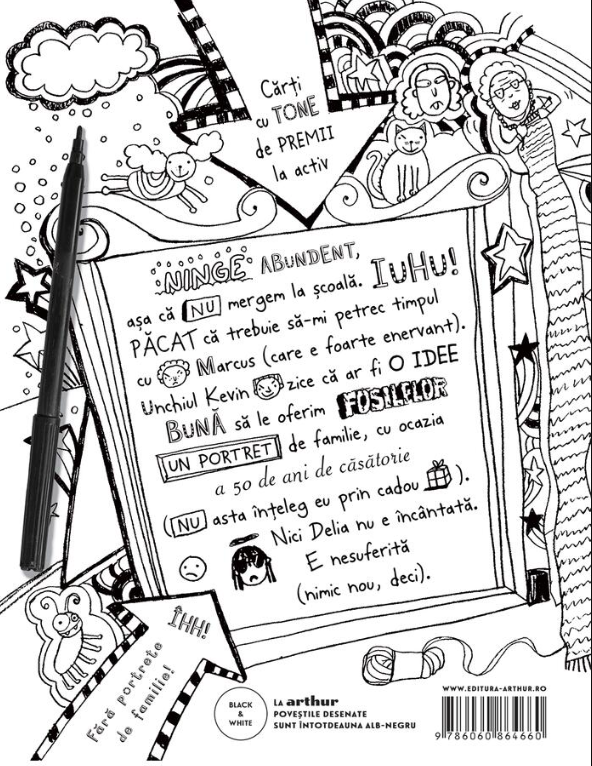 Cărți
cu TONE
de PREMII
la activ
NINGE ABUNDENT,
așa că NU mergem la școală. IuHu!
PĂCAT că trebuie să-mi petrec timpul
cu Marcus (care e foarte enervant).
Unchiul Kevin zice că ar fi O IDEE
BUNĂ să le oferim FOSILELOR
UN PORTRET de familie, cu ocazia
a 50 de ani de căsătorie
(NU asta înțeleg eu prin cadou).
Nici Delia nu e încântată.
E nesuferită
(nimic nou, deci).
ÎHH!
Fără portrete
de familie!
BLACK
&
WHITE
LA arthur
POVEȘTILE DESENATE
SUNT ÎNTOTDEAUNA ALB-NEGRU
WWW.EDITURA-ARTHUR.RO
9 786060 864660